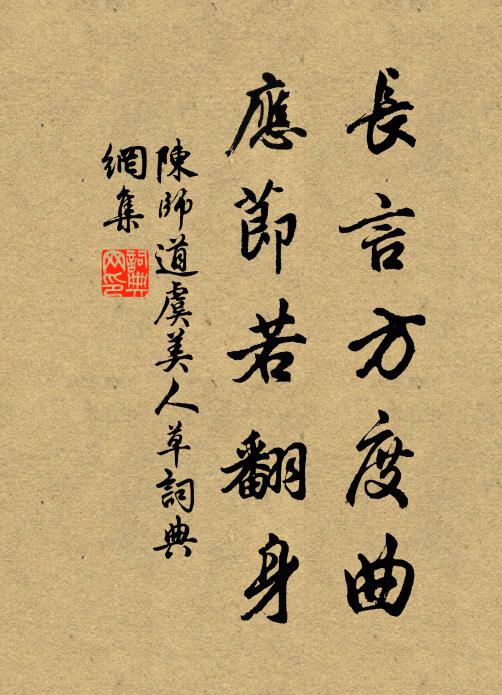 長言方度曲
應節若翻身
陳師道虞美人草詞典
網集
詞典網印